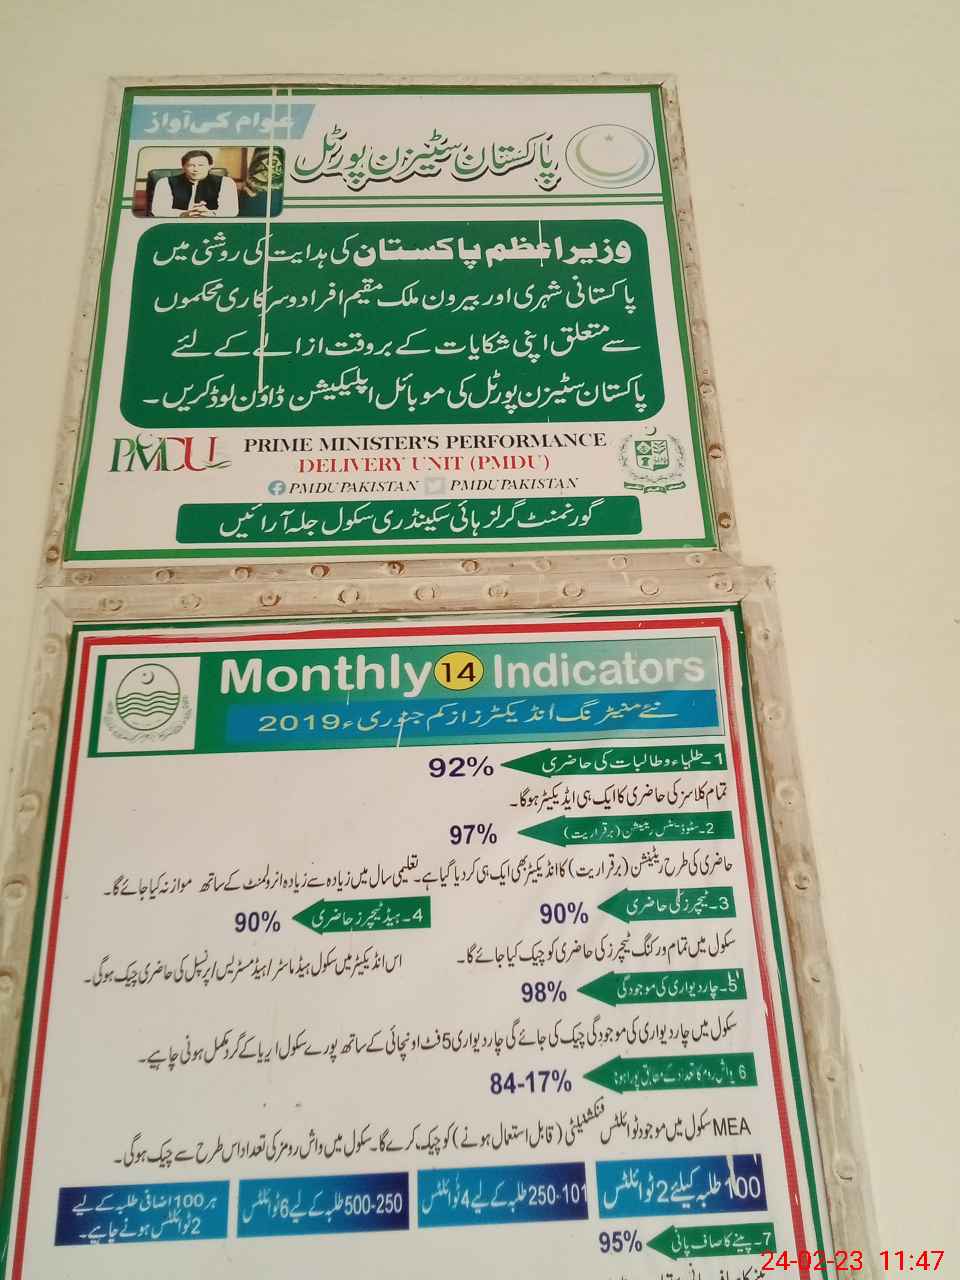 عوام کی آواز
پاکستان سٹیزن پورٹل
وزیراعظم پاکستان کی ہدایت کی روشنی میں
پاکستانی شہری اور بیرون ملک مقیم افراد سرکاری محکموں
سے متعلق اپنی شکایات کے بروقت ازالے کے لئے
پاکستان سٹیزن پورٹل کی موبائل اپلیکیشن ڈاؤن لوڈ کریں۔
PMDU PRIME MINISTER'S PERFORMANCE
DELIVERY UNIT (PMDU)
PMDUPAKISTAN PMDUPAKISTAN
گورنمنٹ گرلز ہائی سکینڈری سکول جلہ آرائیں
Monthly 14 Indicators
نئے منیٹرنگ انڈیکٹرز از یکم جنوری ء 2019
1۔ طلباء و طالبات کی حاضری 92%
تمام کلاسز کی حاضری کا ایک ہی انڈیکیٹر ہوگا۔
2۔ سٹوڈینٹس ریٹینشن (برقراریت) 97%
حاضری کی طرح ریٹینشن (برقراریت) کا انڈیکیٹر بھی ایک ہی کر دیا گیا ہے۔ تعلیمی سال میں زیادہ سے زیادہ انرولمنٹ کے ساتھ موازنہ کیا جائے گا۔
3۔ ٹیچرز کی حاضری 90%
سکول میں تمام ورکنگ ٹیچرز کی حاضری کو چیک کیا جائے گا۔
4۔ ہیڈ ٹیچرز حاضری 90%
اس انڈیکیٹر میں سکول ہیڈ ماسٹر/ہیڈ مسٹریس/پرنسپل کی حاضری چیک ہوگی۔
5۔ چار دیواری کی موجودگی 98%
سکول میں چار دیواری کی موجودگی چیک کی جائے گی چار دیواری 5 فٹ اونچائی کے ساتھ پورے سکول ایریا کے گرد مکمل ہونی چاہیے۔
6 واش روم کا تعداد کے مطابق پورا ہونا 84-17%
MEA سکول میں موجود ٹوائلٹس فنکشنلیٹی (قابل استعمال ہونے) کو چیک کرے گا۔ سکول میں واش رومز کی تعداد اس طرح سے چیک ہوگی۔
100 طلبہ کیلئے 2 ٹوائلٹس
101-250 طلبہ کے لیے 4 ٹوائلٹس
250-500 طلبہ کے لیے 6 ٹوائلٹس
ہر 100 اضافی طلبہ کے لیے
2 ٹوائلٹس ہونے چاہیے۔
7۔ پینے کا صاف پانی 95%
24-02-23 11:47